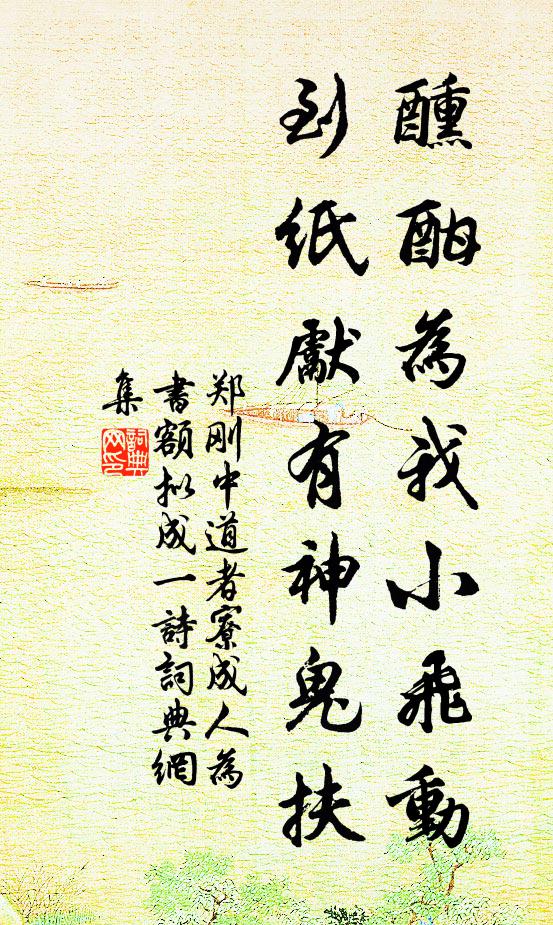 醺酣為我小飛動
到紙獻有神鬼扶
郑刚中道者寮成人為
書額拟成一詩詞典網
集
詞典
网印